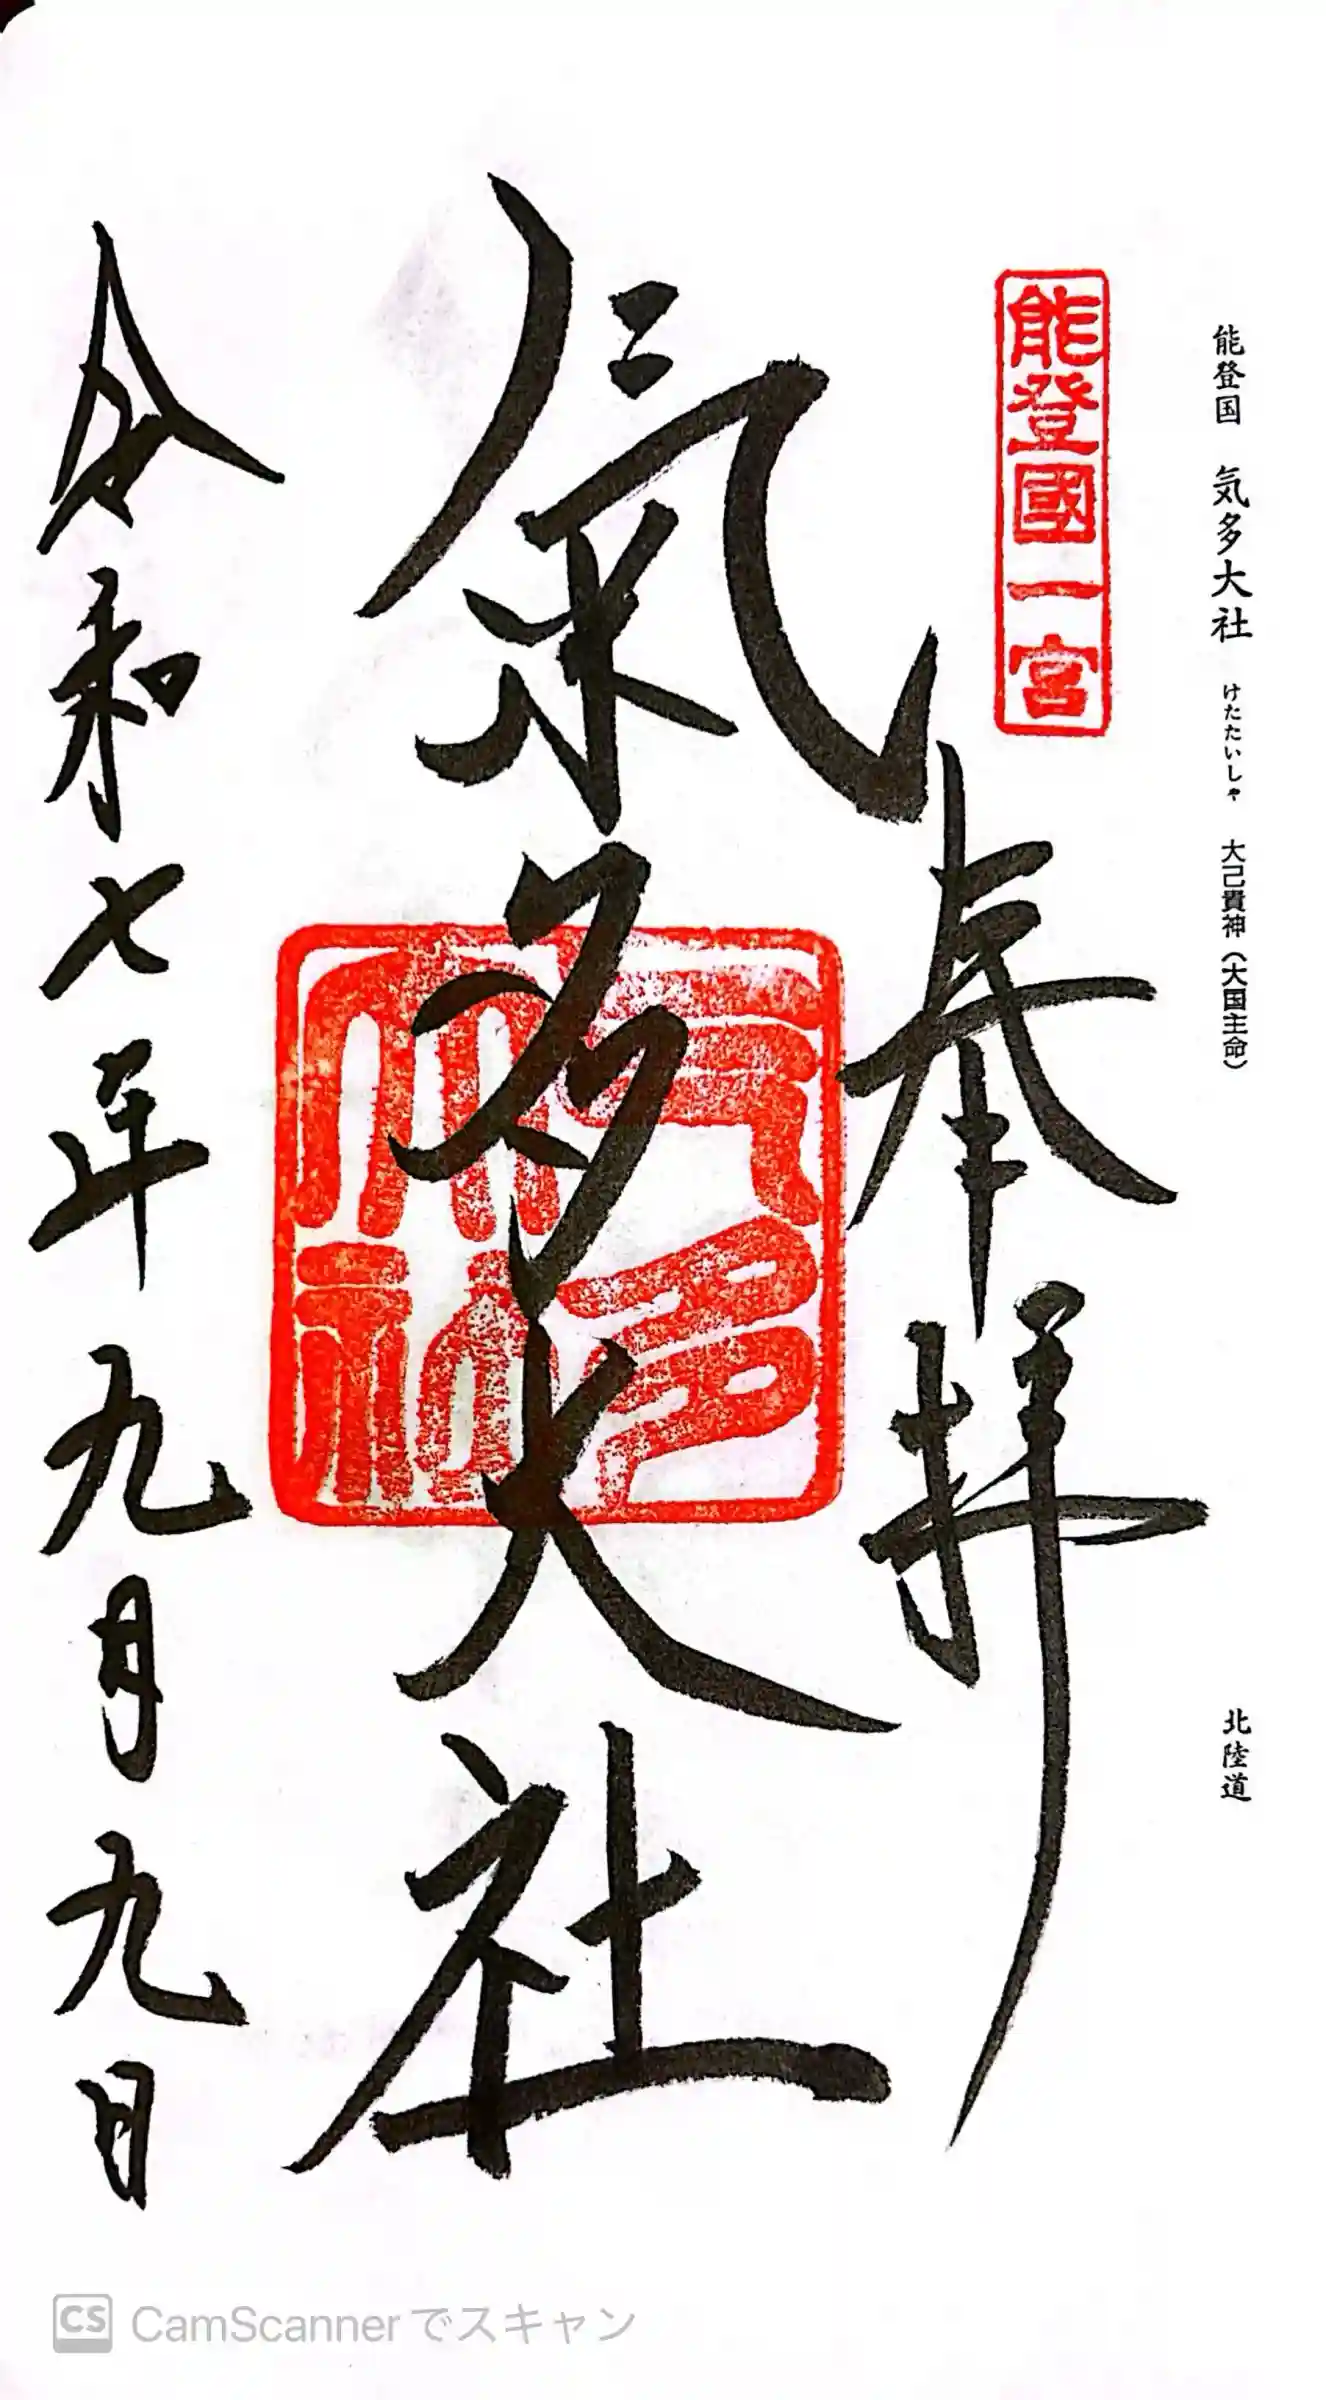 能登国 気多大社 けたたいしゃ 大己貴神(大国主命) 北陸道
能登國一宮
奉拝
氣多大社
気多大社
令和七年九月九日
CS CamScannerでスキャン